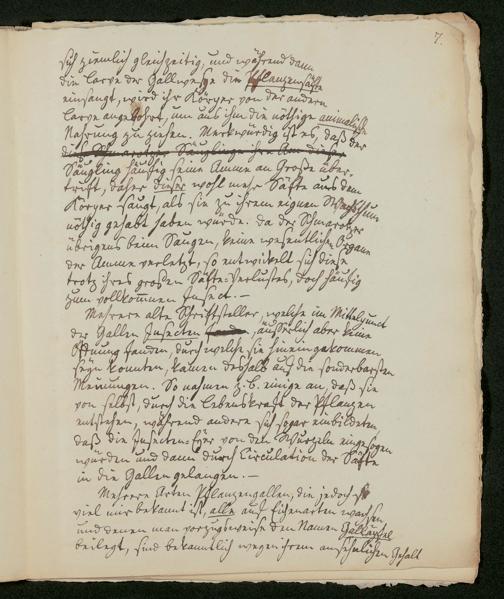 7.
sich ziemlich gleichzeitig, und während dann
die Larve der Gallwespe die Pflanzensäfte
einsaugt, wird ihr Körper von der andern
Larve angebohrt, um aus ihm die nöthige animalische
Nahrung zu ziehen. Merkwürdig ist es, daß der
die Schmarotzer Säuglinge ihre Am
Säugling häufig seine Amme an Größe über-
trifft, daher dieser wohl mehr Säfte aus dem
Körper saugt, als sie zu ihrem eignen Wachsthum
nöthig gehabt haben würde. da der Schmarotzer
übrigens beim Saugen, keine wesentlichen Organe
der Amme verletzt, so entwickelt sich diese
trotz ihres großen Säfte-Verlustes, doch häufig
zum vollkommen Insect.—
Mehrere alte Schriftsteller, welche im Mittelpunct
der Gallen Insecten fanden, äußerlich aber keine
Öffnung fanden, durch welche sie hineingekommen
seyn konnten, kamen deshalb auf die sonderbarsten
Meinungen. So nahmen z. b. einige an, daß sie
von selbst, durch die Lebenskraft der Pflanzen
entstehen, während andere sich sogar einbildeten,
daß die Insecten-Eyer von den Wurzeln eingesogen
würden und dann durch Circulation der Säfte
in die Gallen gelangen.—
Mehrere Arten Pflanzengallen, die jedoch so
viel mir bekannt ist, alle auf Eichenarten wachsen,
und denen man vorzugsweise den Namen Galläpfel
beilegt, sind bekanntlich wegen ihrem ansehnlichen Gehalt